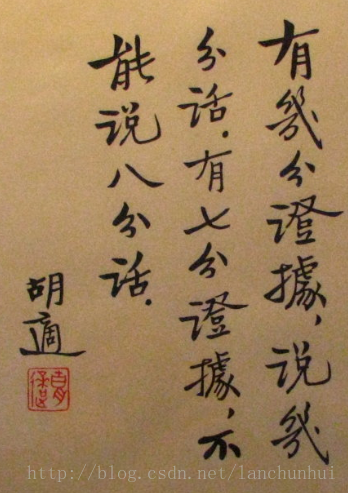 有幾分證據，说幾
分话．有七分證據，不
能说八分话．
胡適
http://blog.csdn.net/lanchunhui